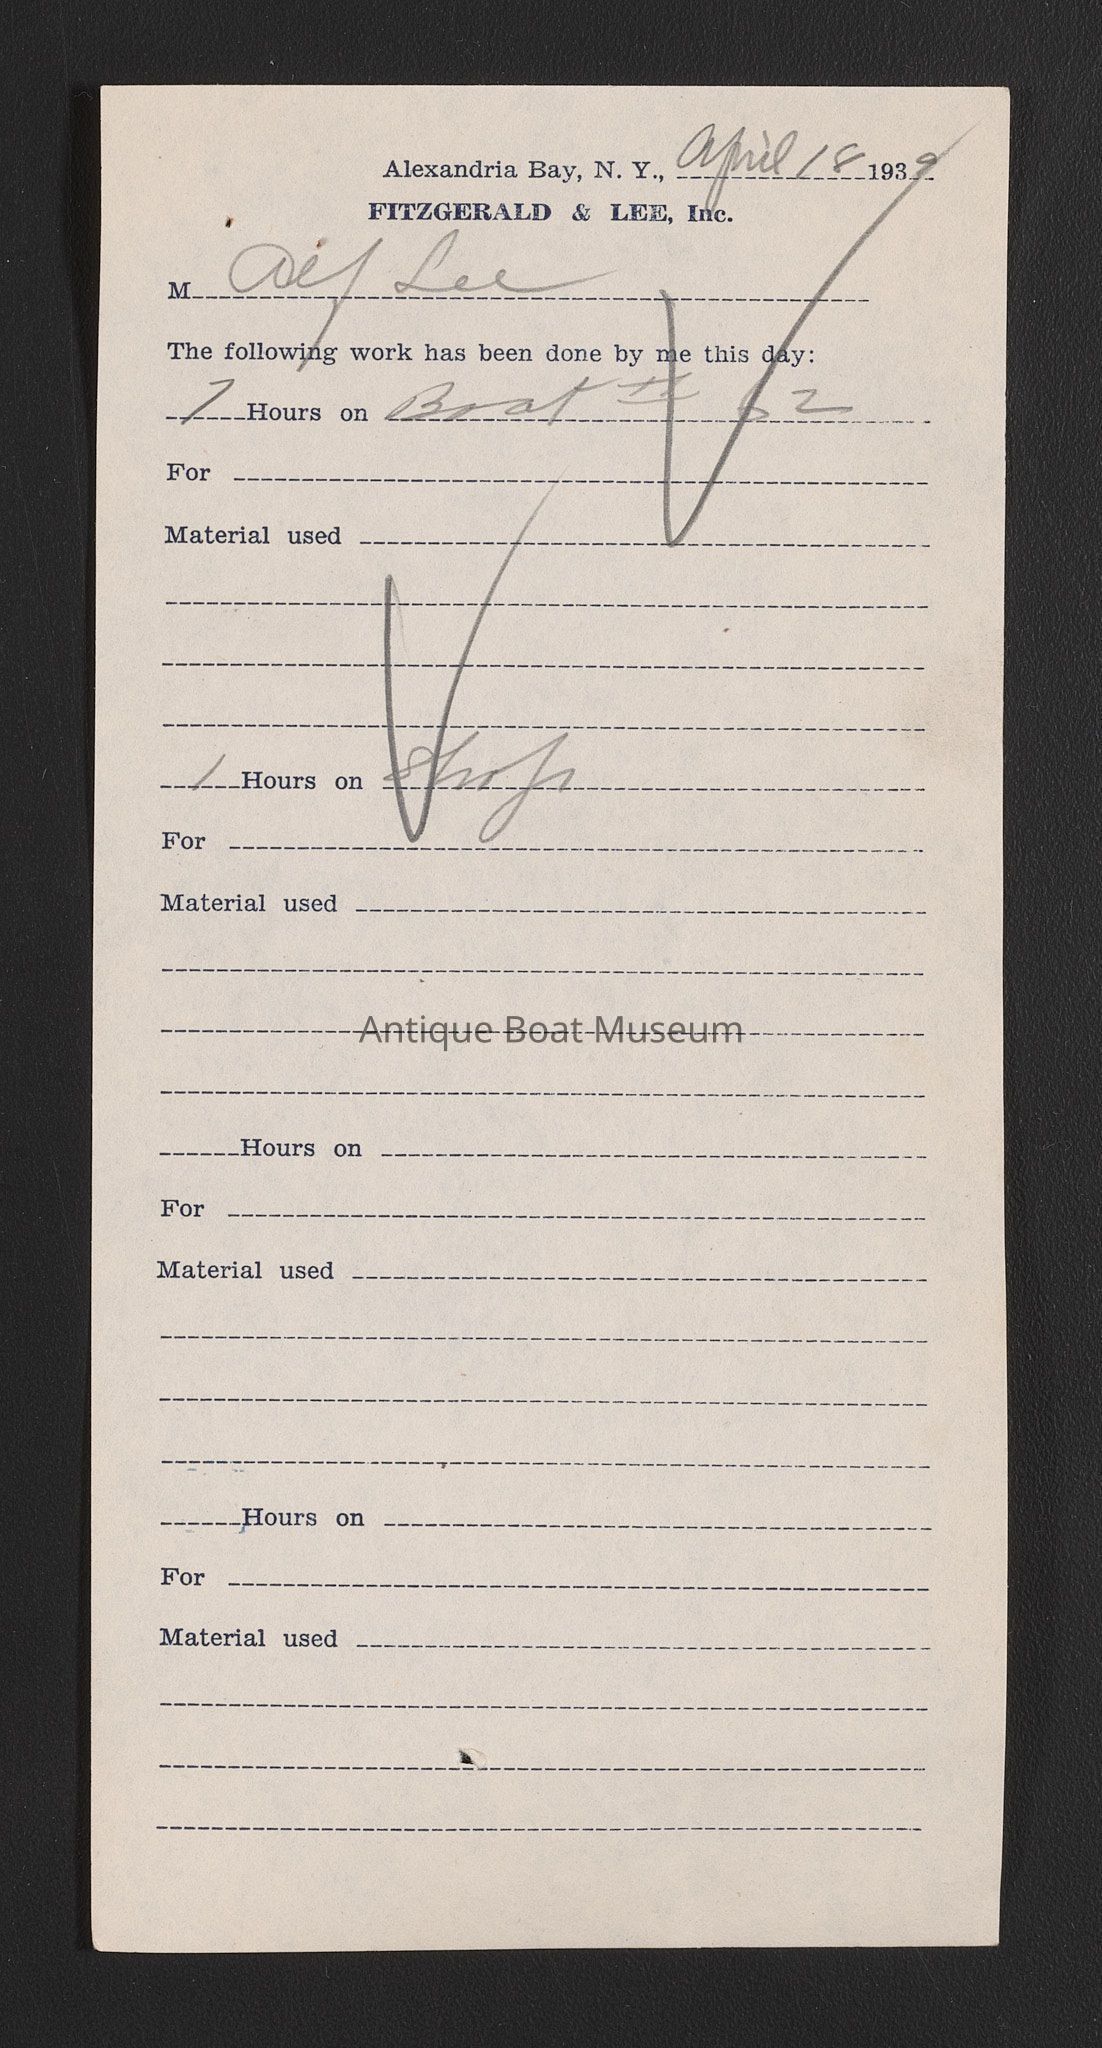 Alexandria Bay, N. Y., April 18 1939
FITZGERALD & LEE, Inc.
M Alf Lee
The following work has been done by me this day:
7 Hours on Boat # 62
For
Material used
1 Hours on Shop
For
Material used
Antique Boat Museum
Hours on
For
Material used
Hours on
For
Material used